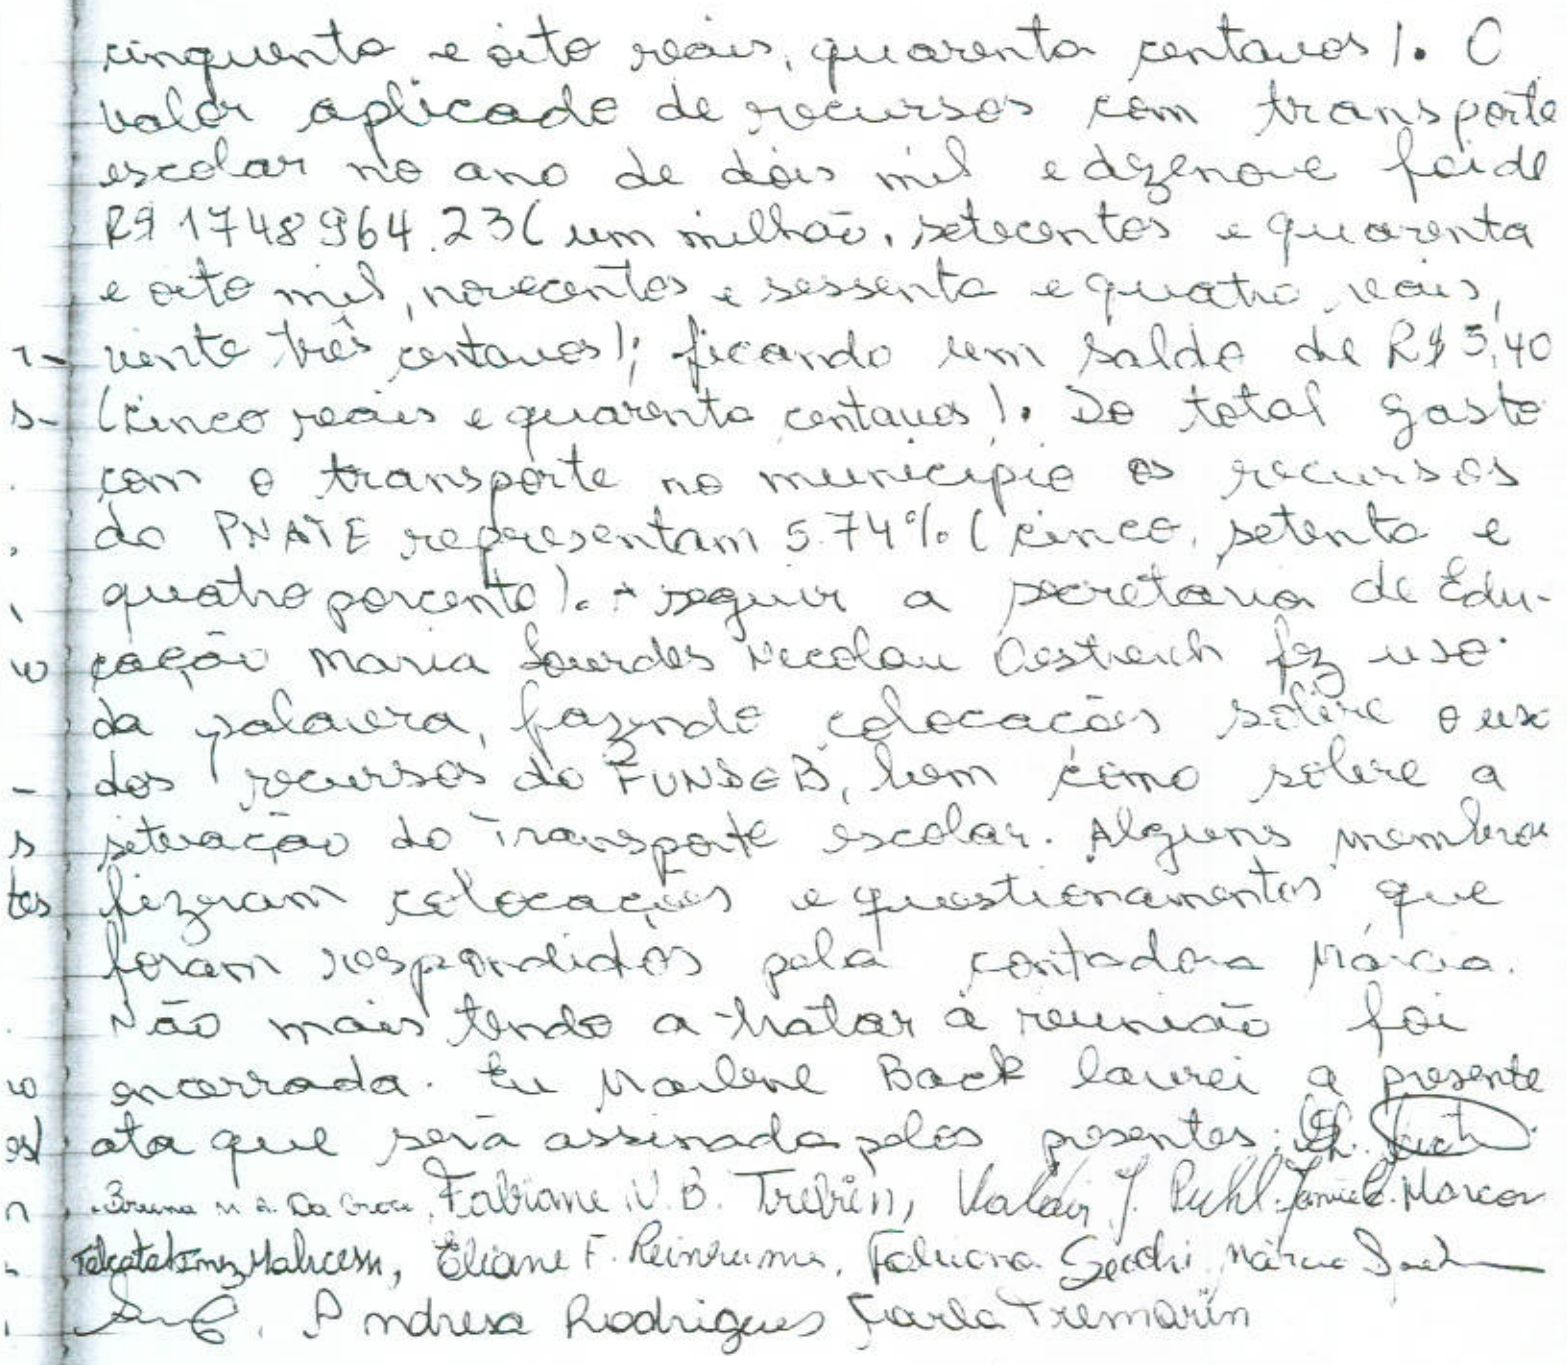 cinquenta e oito reais, quarenta centavos). O
valor aplicado de recursos com transporte
escolar no ano de dois mil e dezenove foi de
R$ 1748964.23 (um milhão, setecentos e quarenta
e oito mil, novecentos e sessenta e quatro reais,
vinte três centavos); ficando um saldo de R$ 5,40
(cinco reais e quarenta centavos). Do total gasto
com o transporte no município os recursos
do PNATE representam 5.74% (cinco, setenta e
quatro porcento). A seguir a secretaria de Edu-
cação Maria Lourdes Nicolau Oestreich fez uso
da palavra, fazendo colocações sobre o uso
dos recursos do FUNDEB, bem como sobre a
situação do Transporte escolar. Alguns membros
fizeram colocações e questionamentos que
foram respondidos pela contadora Márcia.
Não mais tendo a tratar a reunião foi
encerrada. Eu Marlene Back lavrei a presente
ata que será assinada pelos presentes:
Bruna Da Croce, Fabiane V. B. Trevin, Valdir J. Puhl. Marcon
Eliane F. Fabiana Secchi, Márcia
Andresa Rodrigues Carla Tremarin